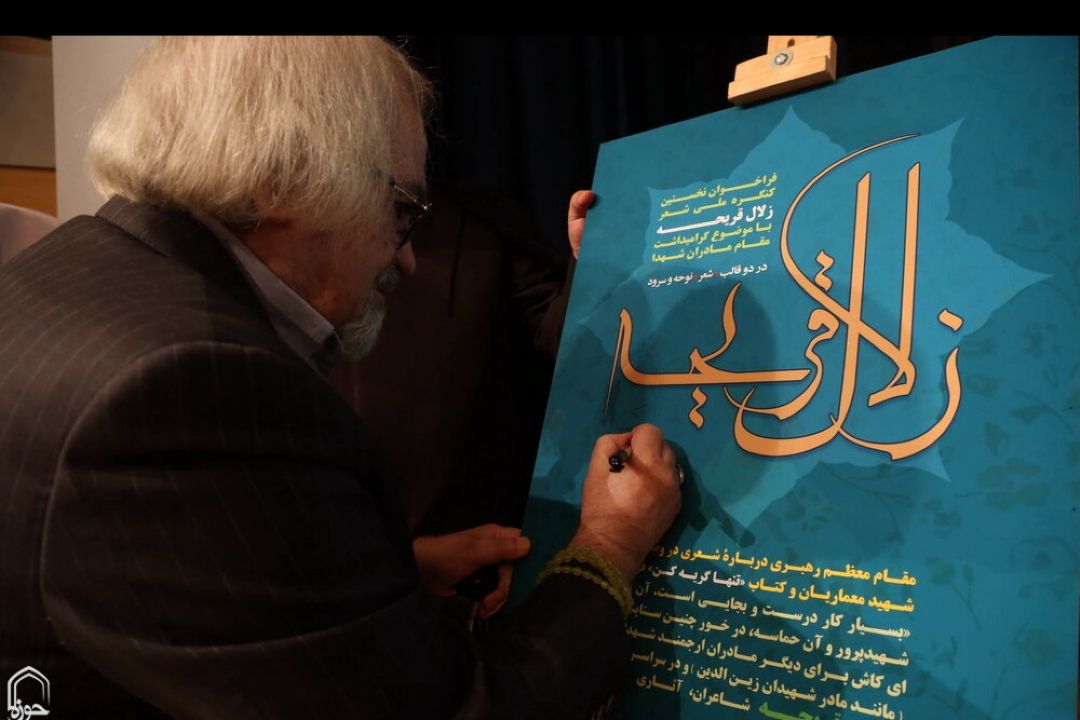 فراخوان نخستین
کنگره ملی شعر
زلال قریحه
با موضوع گرامیداشت
مقام مادران شهدا
در دو قالب «شعر» نوحه و سرود
زلال قریحه
مقام معظم رهبری درباره شعری در
شهید معماریان و کتاب «تنها گریه کن»
«بسیار کار درست و بجایی است. آن
شهیدپرور و آن حماسه، در خور چنین
ای کاش برای دیگر مادران ارجمند
(مانند مادر شهیدان زین الدین) و در سراسر
شاعران، آثاری
حوزه